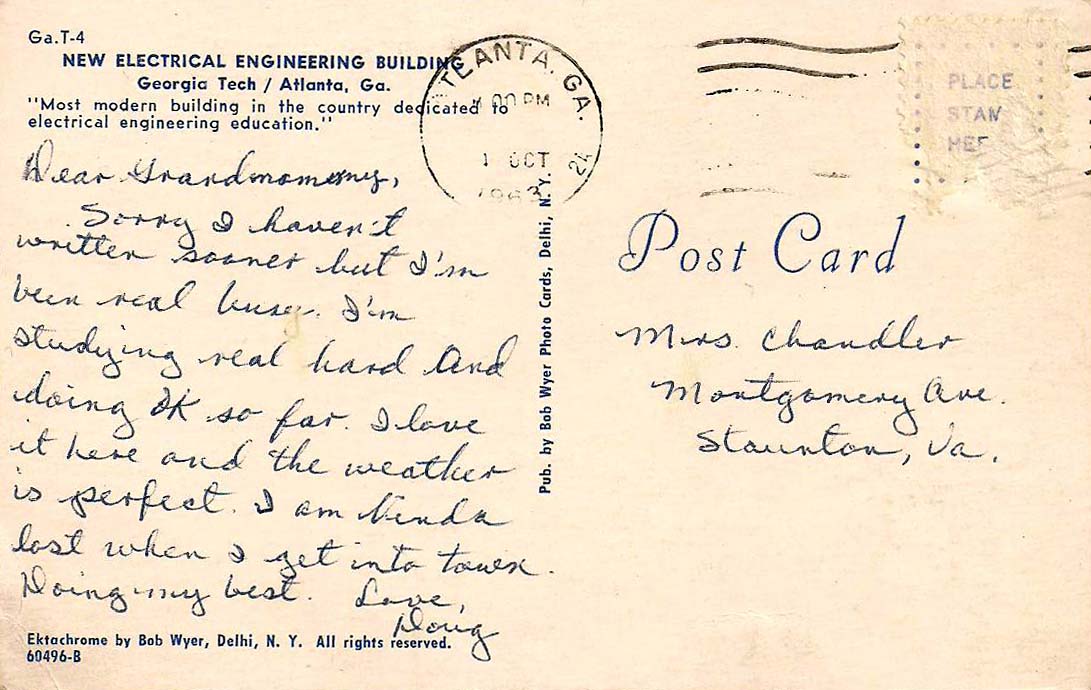 Ga.T-4
NEW ELECTRICAL ENGINEERING BUILDING
Georgia Tech / Atlanta, Ga.
"Most modern building in the country dedicated to
electrical engineering education."
ATLANTA, GA.
00 PM
1 OCT
1963
24
PLACE
STAM
HER
Dear Grandmommy,
Sorry I haven't
written sooner but I'm
been real busy. I'm
studying real hard and
doing OK so far. I love
it here and the weather
is perfect. I am kinda
lost when I get into town.
Doing my best. Love,
Doug
Ektachrome by Bob Wyer, Delhi, N. Y. All rights reserved.
60496-B
Pub. by Bob Wyer Photo Cards, Delhi, N. Y.
Post Card
Mrs. Chandler
Montgomery Ave.
Staunton, Va.